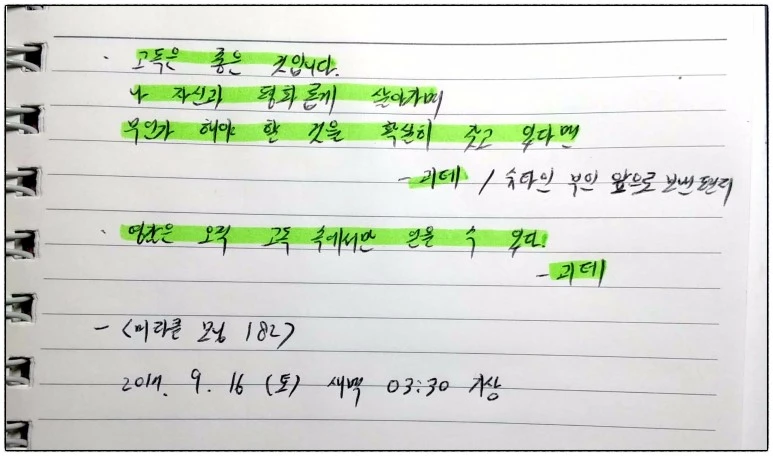 · 고독은 좋은 것입니다.
나 자신과 평화롭게 살아가며
무언가 해야 한 것을 확실히 갖고 있다면
- 괴테 / 슈타인 부인 앞으로 보낸 편지
· 영감은 오직 고독 속에서만 얻을 수 있다.
- 괴테
- <미라클 모닝 182>
2017. 9. 16 (토) 새벽 03:30 기상